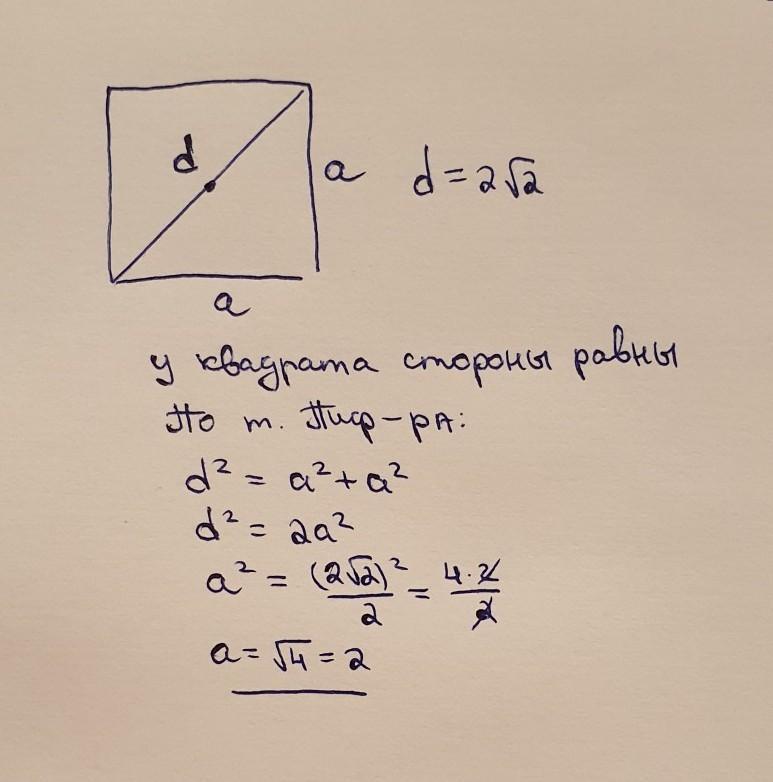 d
a
d = 2√2
a
у квадрата стороны равны
По т. Пиф-рА:
d² = a² + a²
d² = 2a²
a² = (2√2)²/2 = 4·2/2
a = √4 = 2